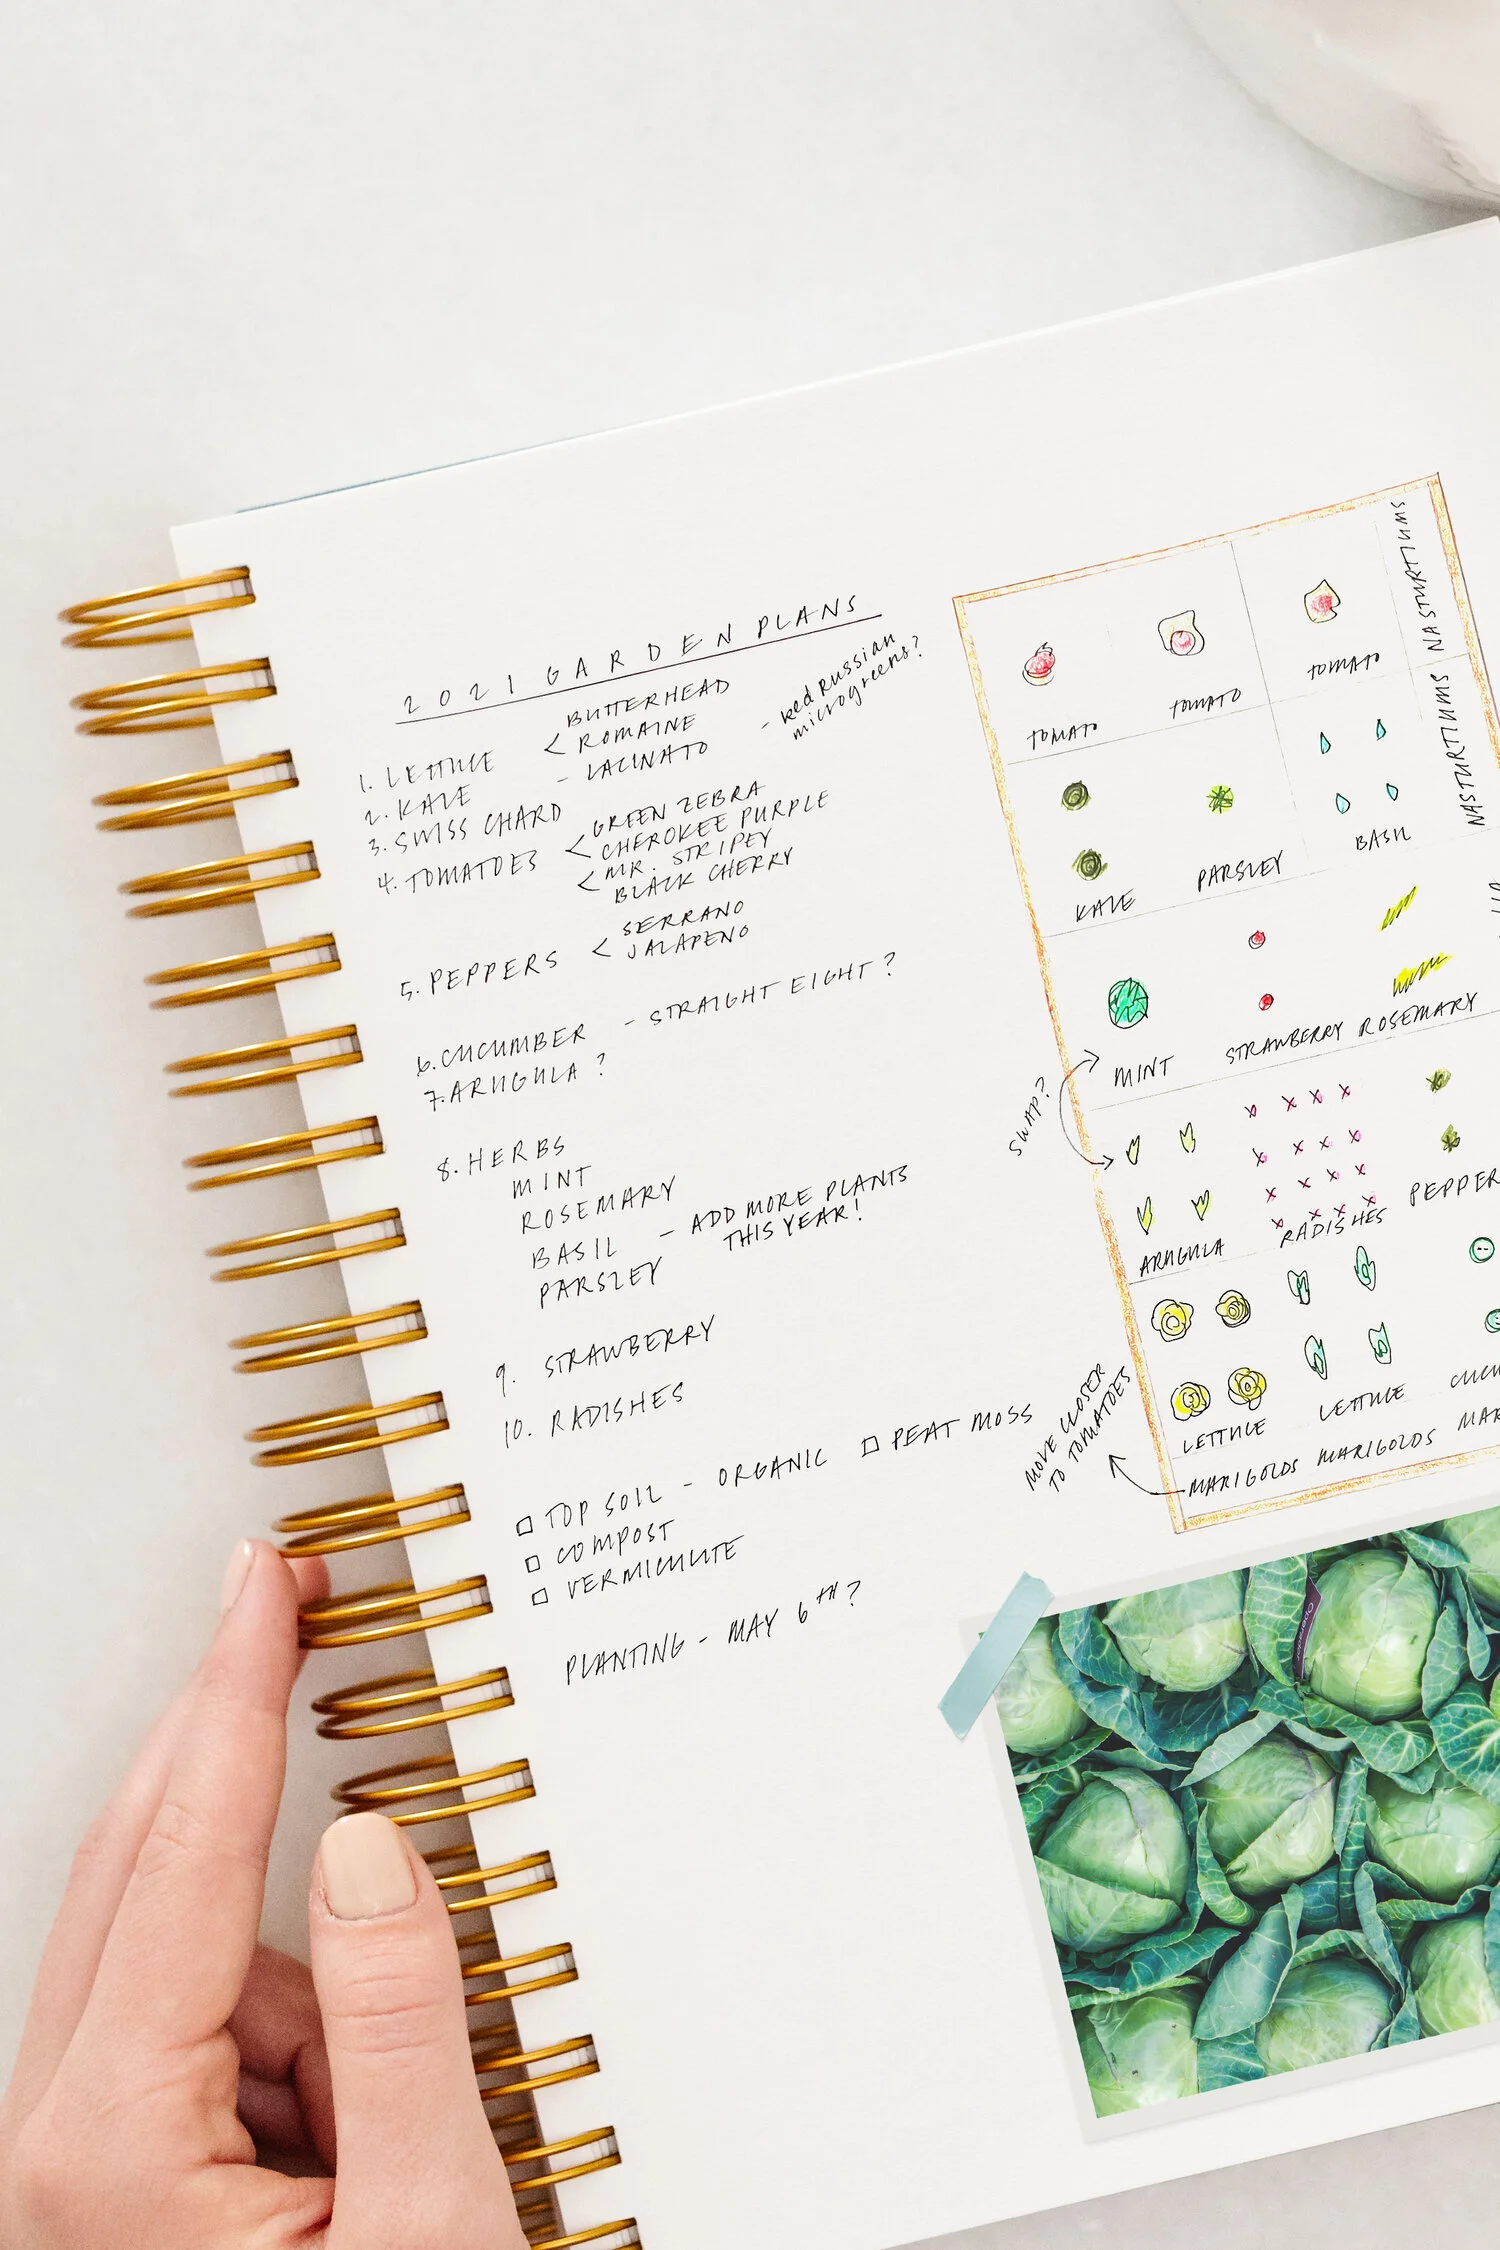 2021 GARDEN PLANS
1. LETTUCE < BUTTERHEAD
ROMAINE
2. KALE - LACINATO - Red Russian
microgreens?
3. SWISS CHARD
4. TOMATOES < GREEN ZEBRA
CHEROKEE PURPLE
< MR. STRIPEY
BLACK CHERRY
5. PEPPERS < SERRANO
JALAPENO
6. CUCUMBER - STRAIGHT EIGHT?
7. ARUGULA?
8. HERBS
MINT
ROSEMARY
BASIL - ADD MORE PLANTS
THIS YEAR!
PARSLEY
9. STRAWBERRY
10. RADISHES
□ TOP SOIL - ORGANIC □ PEAT MOSS
□ COMPOST
□ VERMICULITE
PLANTING - MAY 6TH?
TOMATO TOMATO TOMATO NASTURTIUMS
KALE PARSLEY BASIL NASTURTIUMS
MINT STRAWBERRY ROSEMARY
SWAP?
ARUGULA RADISHES PEPPER
LETTUCE LETTUCE CUCU
MARIGOLDS MARIGOLDS MAR
MOVE CLOSER
TO TOMATOES